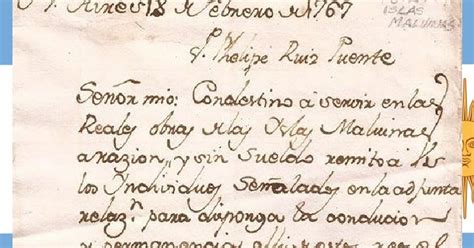 Aires 18 de Febrero de 1767
ISLAS
MALVINAS
Phelipe Ruiz Puente
Señor mio: Con destino á servir en las
Reales obras de las Islas Malvinas
a razion, y sin sueldo remito á
los Individuos Señalados en la adjunta
relaz.n para disponga la conducion
y permanencia